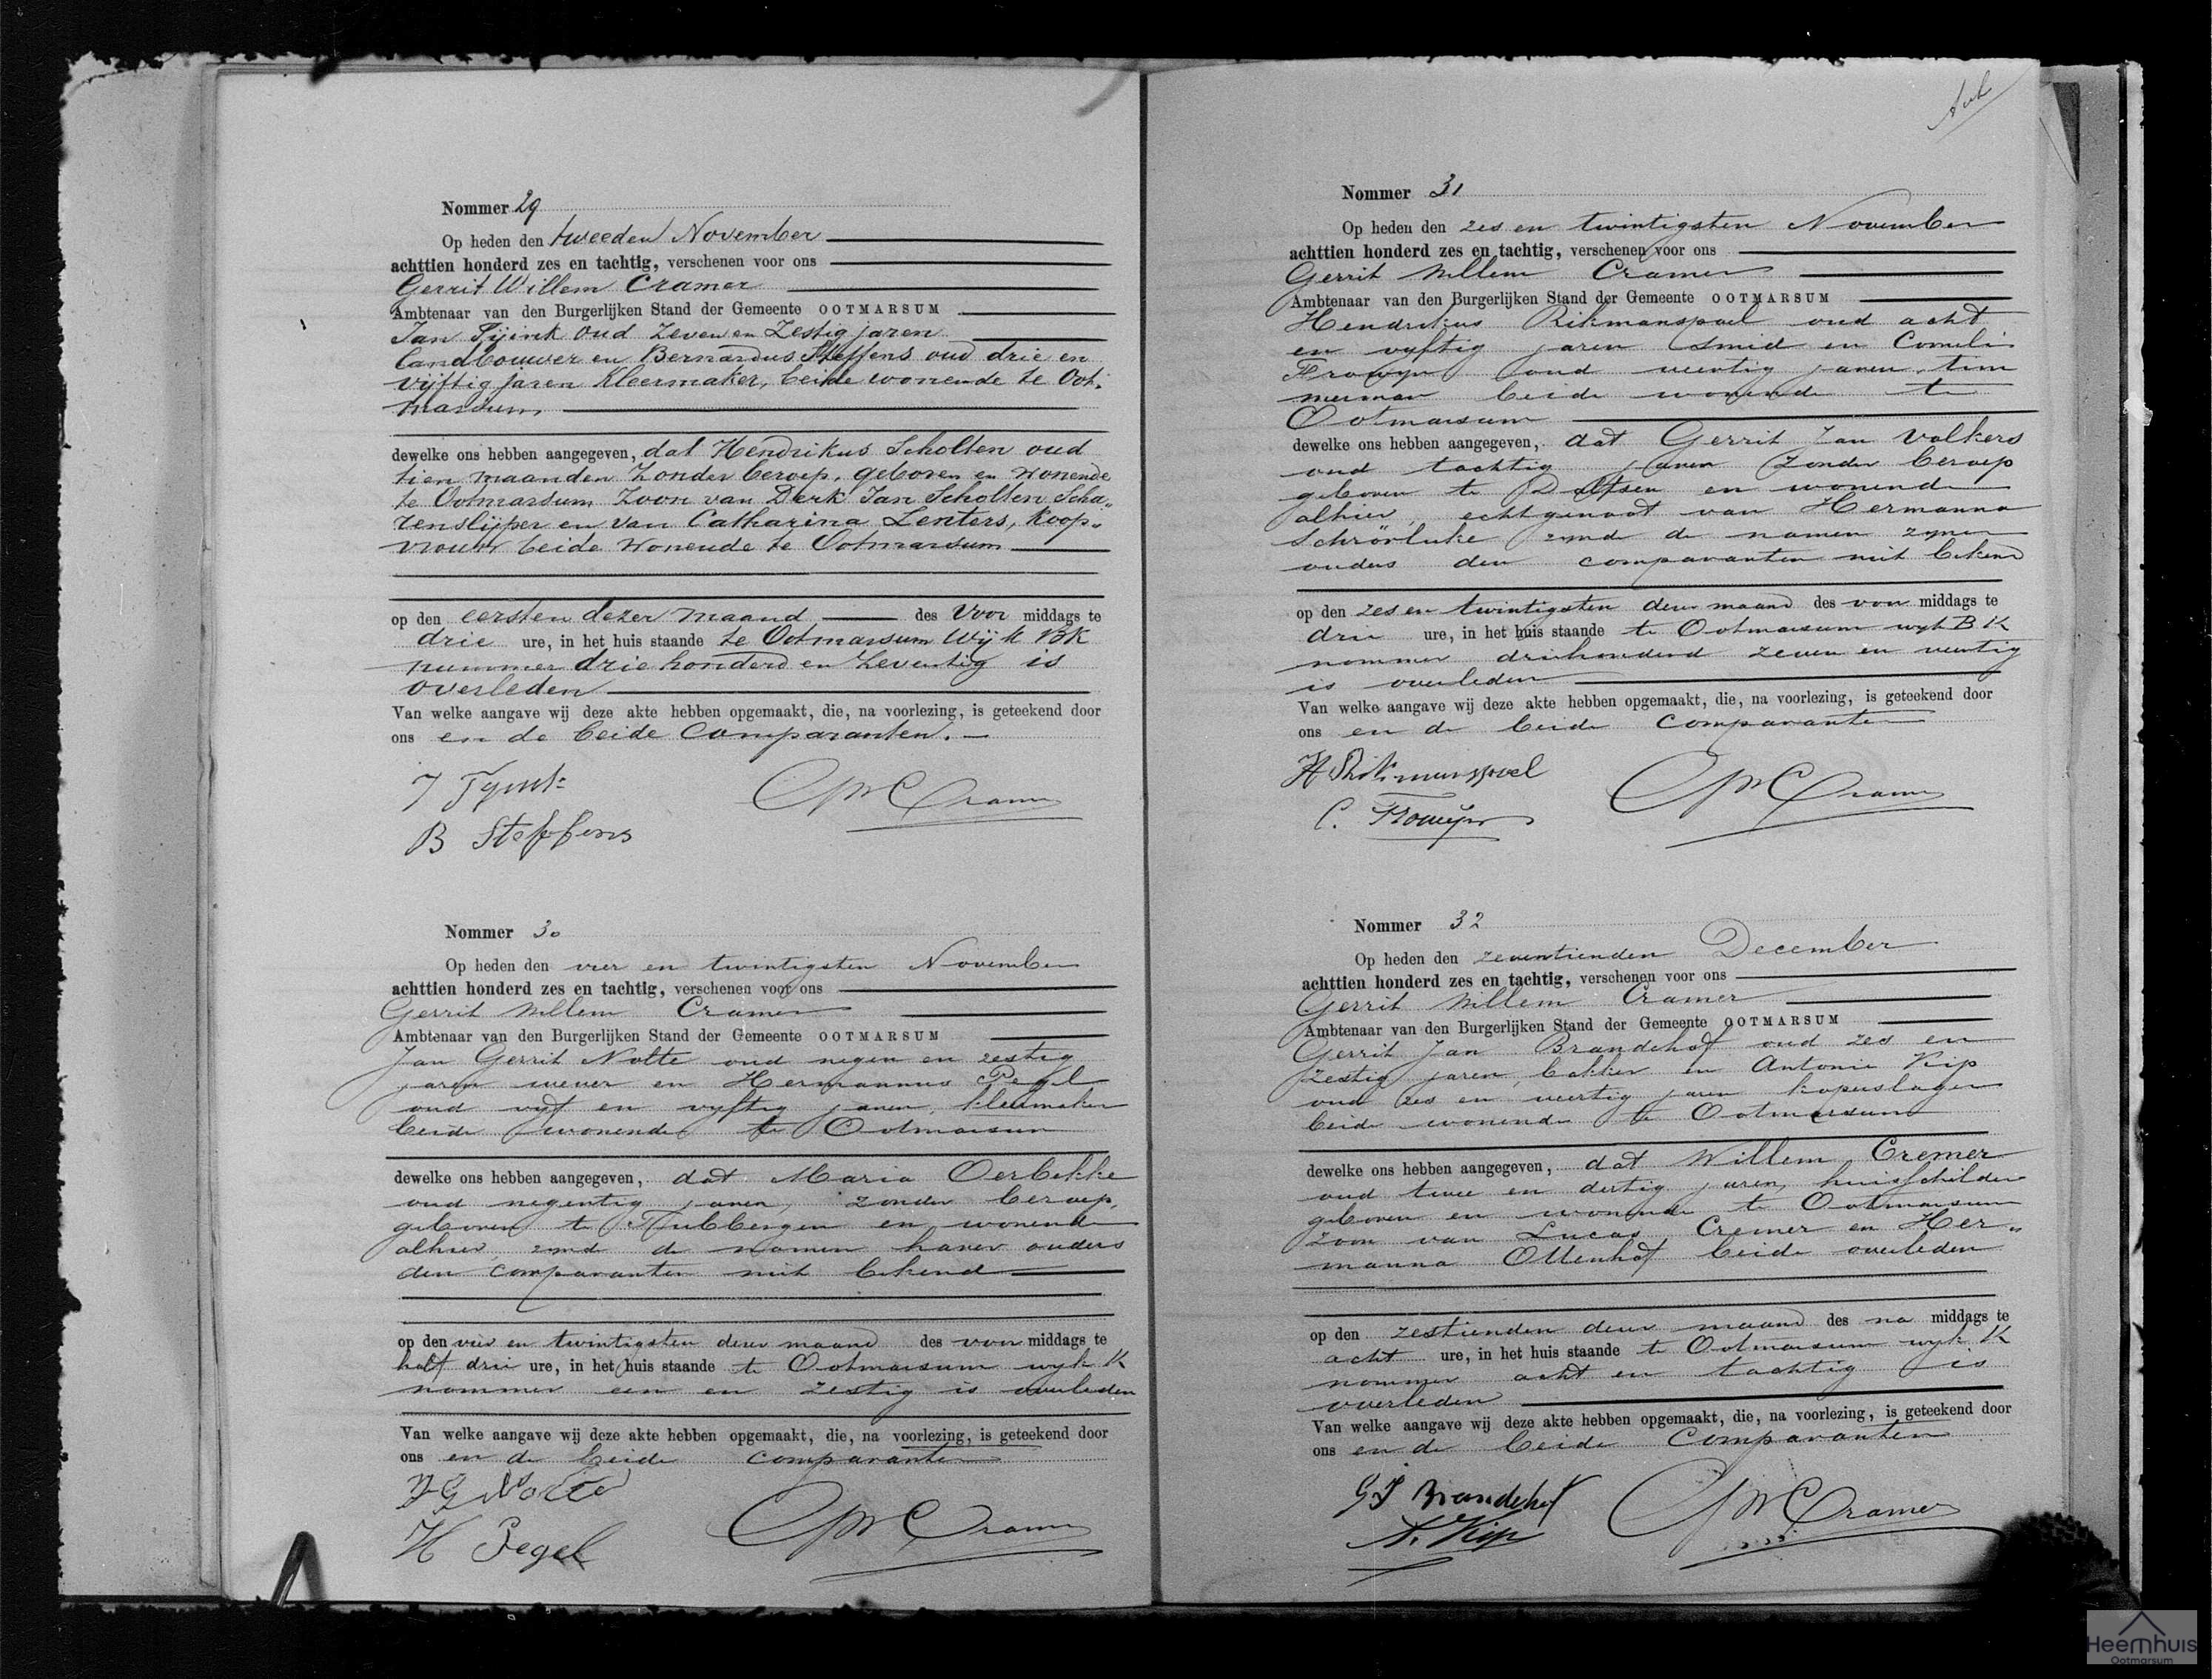 Nommer 29
Op heden den tweeden November
achttien honderd zes en tachtig, verschenen voor ons
Gerrit Willem Cramer
Ambtenaar van den Burgerlijken Stand der Gemeente OOTMARSUM
Jan Tijink oud Zeven en Zestig jaren
landbouwer en Bernardus Steffens oud drie en
vijftig jaren Kleermaker, beide wonende te Oot-
marsum,
dewelke ons hebben aangegeven, dat Hendrikus Scholten oud
tien maanden Zonder beroep, geboren en wonende
te Ootmarsum Zoon van Derk Jan Scholten Scha„
renslijper en van Catharina Lenters, Koop„
vrouw beide wonende te Ootmarsum
op den eersten dezer maand des Voor middags te
drie ure, in het huis staande te Ootmarsum Wijk BK
nummer drie honderd en Zeventig is
overleden
Van welke aangave wij deze akte hebben opgemaakt, die, na voorlezing, is geteekend door
ons en de beide Comparanten.
J Tyink
GW Cramer
B Steffens
Nommer 30
Op heden den vier en twintigsten November
achttien honderd zes en tachtig, verschenen voor ons
Gerrit Willem Cramer
Ambtenaar van den Burgerlijken Stand der Gemeente OOTMARSUM
Jan Gerrit Nolte oud negen en zestig
jaren wever en Hermannus Pegel
oud vyf en vyftig jaren, kleermaker
beide wonende te Ootmarsum
dewelke ons hebben aangegeven, dat Maria Oerbekke
oud negentig jaren, zonder beroep,
geboren te Tubbergen en wonende
alhier zynde de namen harer ouders
den comparanten niet bekend
op den vier en twintigsten dezer maand des voor middags te
half drie ure, in het huis staande te Ootmarsum wyk K
nommer een en zestig is overleden
Van welke aangave wij deze akte hebben opgemaakt, die, na voorlezing, is geteekend door
ons en de beide comparanten
JG Nolte
H Pegel
GW Cramer
Nommer 31
Op heden den zes en twintigsten November
achttien honderd zes en tachtig, verschenen voor ons
Gerrit Willem Cramer
Ambtenaar van den Burgerlijken Stand der Gemeente OOTMARSUM
Hendrikus Rikmanspoel oud acht
en vyftig jaren smid en Cornelis
Frowyn oud veertig jaren, tim
merman beide wonende te
Ootmarsum
dewelke ons hebben aangegeven, dat Gerrit Jan Volkers
oud tachtig jaren zonder beroep
geboren te Dalfsen en wonende
alhier, echtgenoot van Hermanna
Schrörluke zynde de namen zyner
ouders den comparanten niet bekend
op den zes en twintigsten dezer maand des voor middags te
drie ure, in het huis staande te Ootmarsum wyk B K
nommer driehonderd zeven en veertig
is overleden
Van welke aangave wij deze akte hebben opgemaakt, die, na voorlezing, is geteekend door
ons en de beide comparanten
H Rikmanspoel
C. Frouwyn
GW Cramer
Nommer 32
Op heden den zeventienden December
achttien honderd zes en tachtig, verschenen voor ons
Gerrit Willem Cramer
Ambtenaar van den Burgerlijken Stand der Gemeente OOTMARSUM
Gerrit Jan Brandehof oud zes en
zestig jaren, bakker en Antonie Kip
oud zes en veertig jaren koperslager
beide wonende te Ootmarsum
dewelke ons hebben aangegeven, dat Willem Cremer
oud twee en dertig jaren, huisschilder
geboren en wonende te Ootmarsum
zoon van Lucas Cremer en Her„
manna Ottenhof beide overleden
op den zestienden dezer maand des na middags te
acht ure, in het huis staande te Ootmarsum wyk K
nommer acht en tachtig is
overleden
Van welke aangave wij deze akte hebben opgemaakt, die, na voorlezing, is geteekend door
ons en de beide Comparanten
GJ Brandehof
A. Kip
GW Cramer
Heemhuis
Ootmarsum